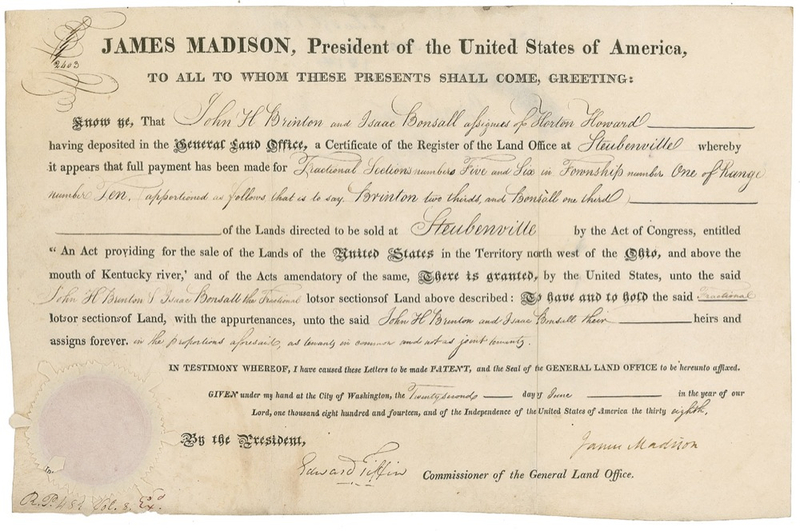 2403
JAMES MADISON, President of the United States of America,
TO ALL TO WHOM THESE PRESENTS SHALL COME, GREETING:
Know ye, That John H Brinton and Isaac Bonsall assignees of Horton Howard
having deposited in the General Land Office, a Certificate of the Register of the Land Office at Steubenville whereby
it appears that full payment has been made for Fractional Sections numbers Five and Six in Township number One of Range
number Ten, apportioned as follows that is to say Brinton two thirds, and Bonsall one third
of the Lands directed to be sold at Steubenville by the Act of Congress, entitled
“An Act providing for the sale of the Lands of the United States in the Territory north west of the Ohio, and above the
mouth of Kentucky river,' and of the Acts amendatory of the same, There is granted, by the United States, unto the said
John H Brinton & Isaac Bonsall the Fractional lotsor sectionsof Land above described: To have and to hold the said Fractional
lotsor sectionsof Land, with the appurtenances, unto the said John H Brinton and Isaac Bonsall their heirs and
assigns forever. in the proportions aforesaid, as tenants in common and not as joint tenants.
IN TESTIMONY WHEREOF, I have caused these Letters to be made PATENT, and the Seal of the GENERAL LAND OFFICE to be hereunto affixed.
GIVEN under my hand at the City of Washington, the Twenty second day of June in the year of our
Lord, one thousand eight hundred and fourteen, and of the Independence of the United States of America the thirty eighth.
By the President,
James Madison
Edward Tiffin Commissioner of the General Land Office.
Vol. 8